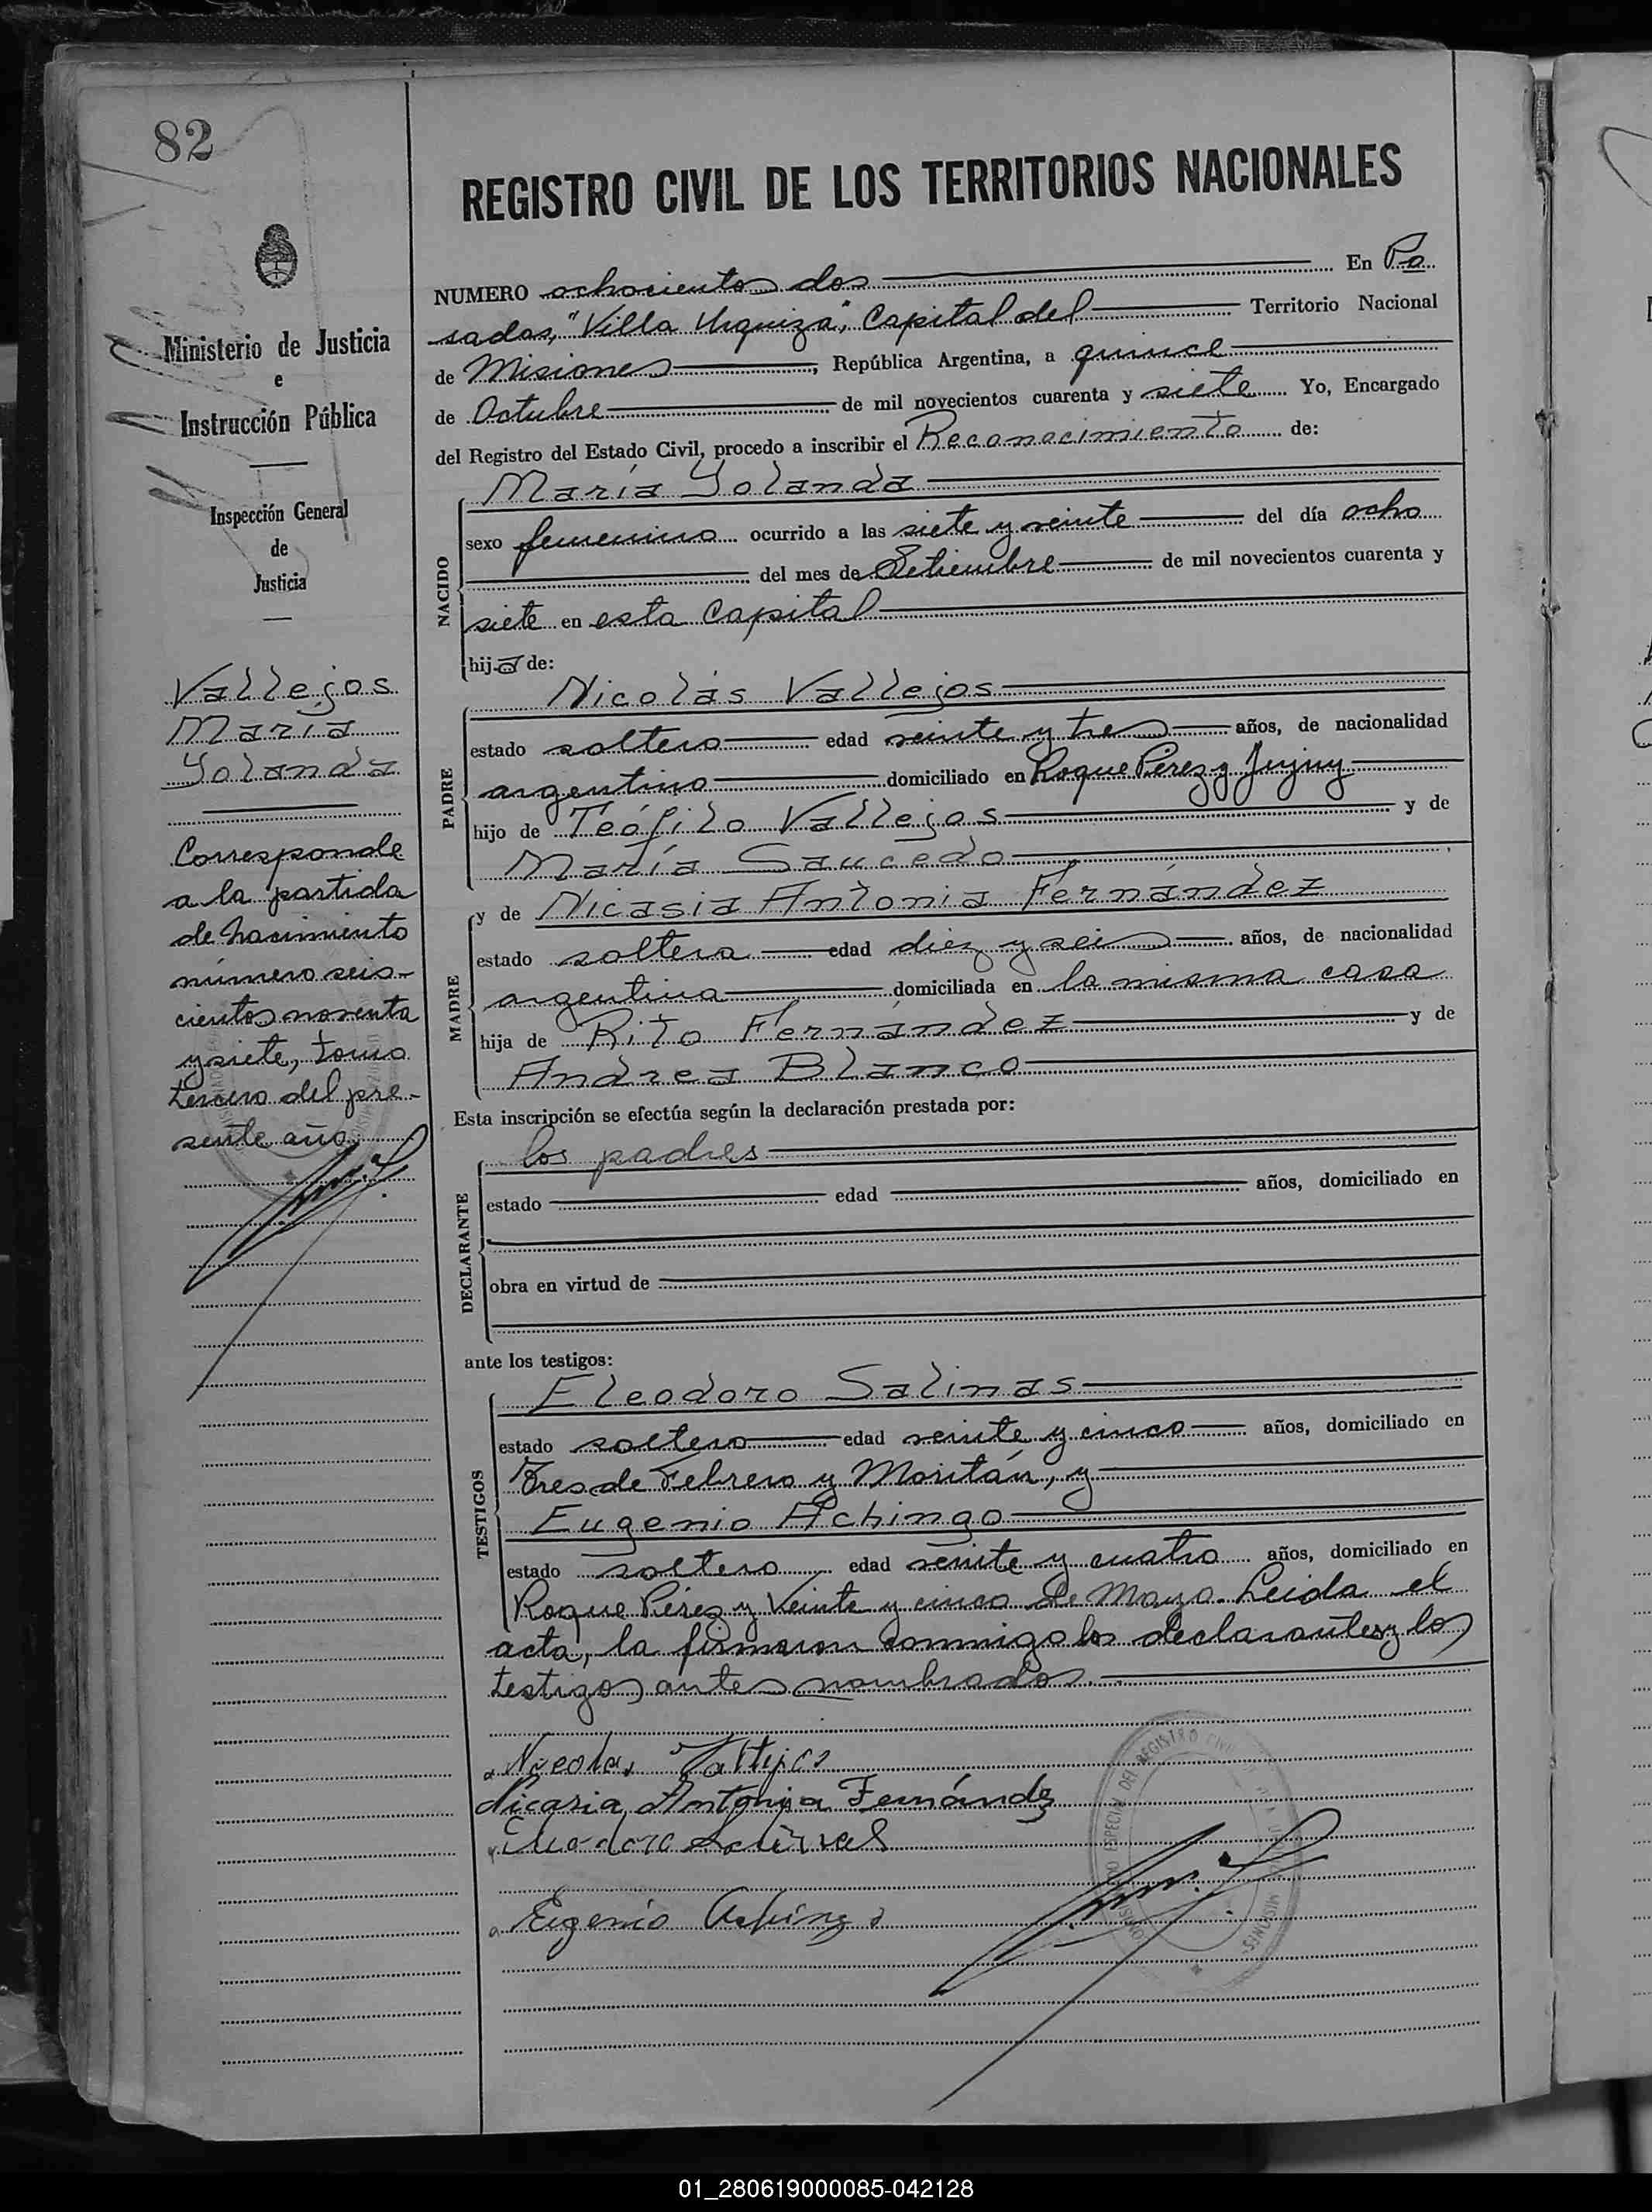 82
Ministerio de Justicia
e
Instrucción Pública
Inspección General
de
Justicia
Vallejos
María
Yolanda
Corresponde
a la partida
de nacimiento
número seis-
cientos noventa
y siete, tomo
tercero del pre-
sente año.
REGISTRO CIVIL DE LOS TERRITORIOS NACIONALES
NUMERO ochocientos dos En Po
sadas, "Villa Urquiza", Capital del Territorio Nacional
de Misiones, República Argentina, a quince
de Octubre de mil novecientos cuarenta y siete Yo, Encargado
del Registro del Estado Civil, procedo a inscribir el Reconocimiento de:
NACIDO
María Yolanda
sexo femenino ocurrido a las siete y veinte del día ocho
del mes de Setiembre de mil novecientos cuarenta y
siete en esta Capital
hija de:
PADRE
Nicolás Vallejos
estado soltero edad veinte y tres años, de nacionalidad
argentino domiciliado en Roque Pérez y Jujuy
hijo de Teófilo Vallejos y de
María Saucedo
MADRE
y de Nicasia Antonia Fernández
estado soltera edad diez y seis años, de nacionalidad
argentina domiciliada en la misma casa
hija de Rito Fernández y de
Andrea Blanco
Esta inscripción se efectúa según la declaración prestada por:
DECLARANTE
los padres
estado edad años, domiciliado en
obra en virtud de
ante los testigos:
TESTIGOS
Eleodoro Salinas
estado soltero edad veinte y cinco años, domiciliado en
Tres de Febrero y Moritán, y
Eugenio Achingo
estado soltero edad veinte y cuatro años, domiciliado en
Roque Pérez y Veinte y cinco de Mayo. Leida el
acta, la firmaron conmigo los declarantes y los
testigos antes nombrados.
Nicolas Vallejos
Nicasia Antonia Fernández
Eugenio Achingo
REGISTRO CIVIL
MISIONES
01_280619000085-042128